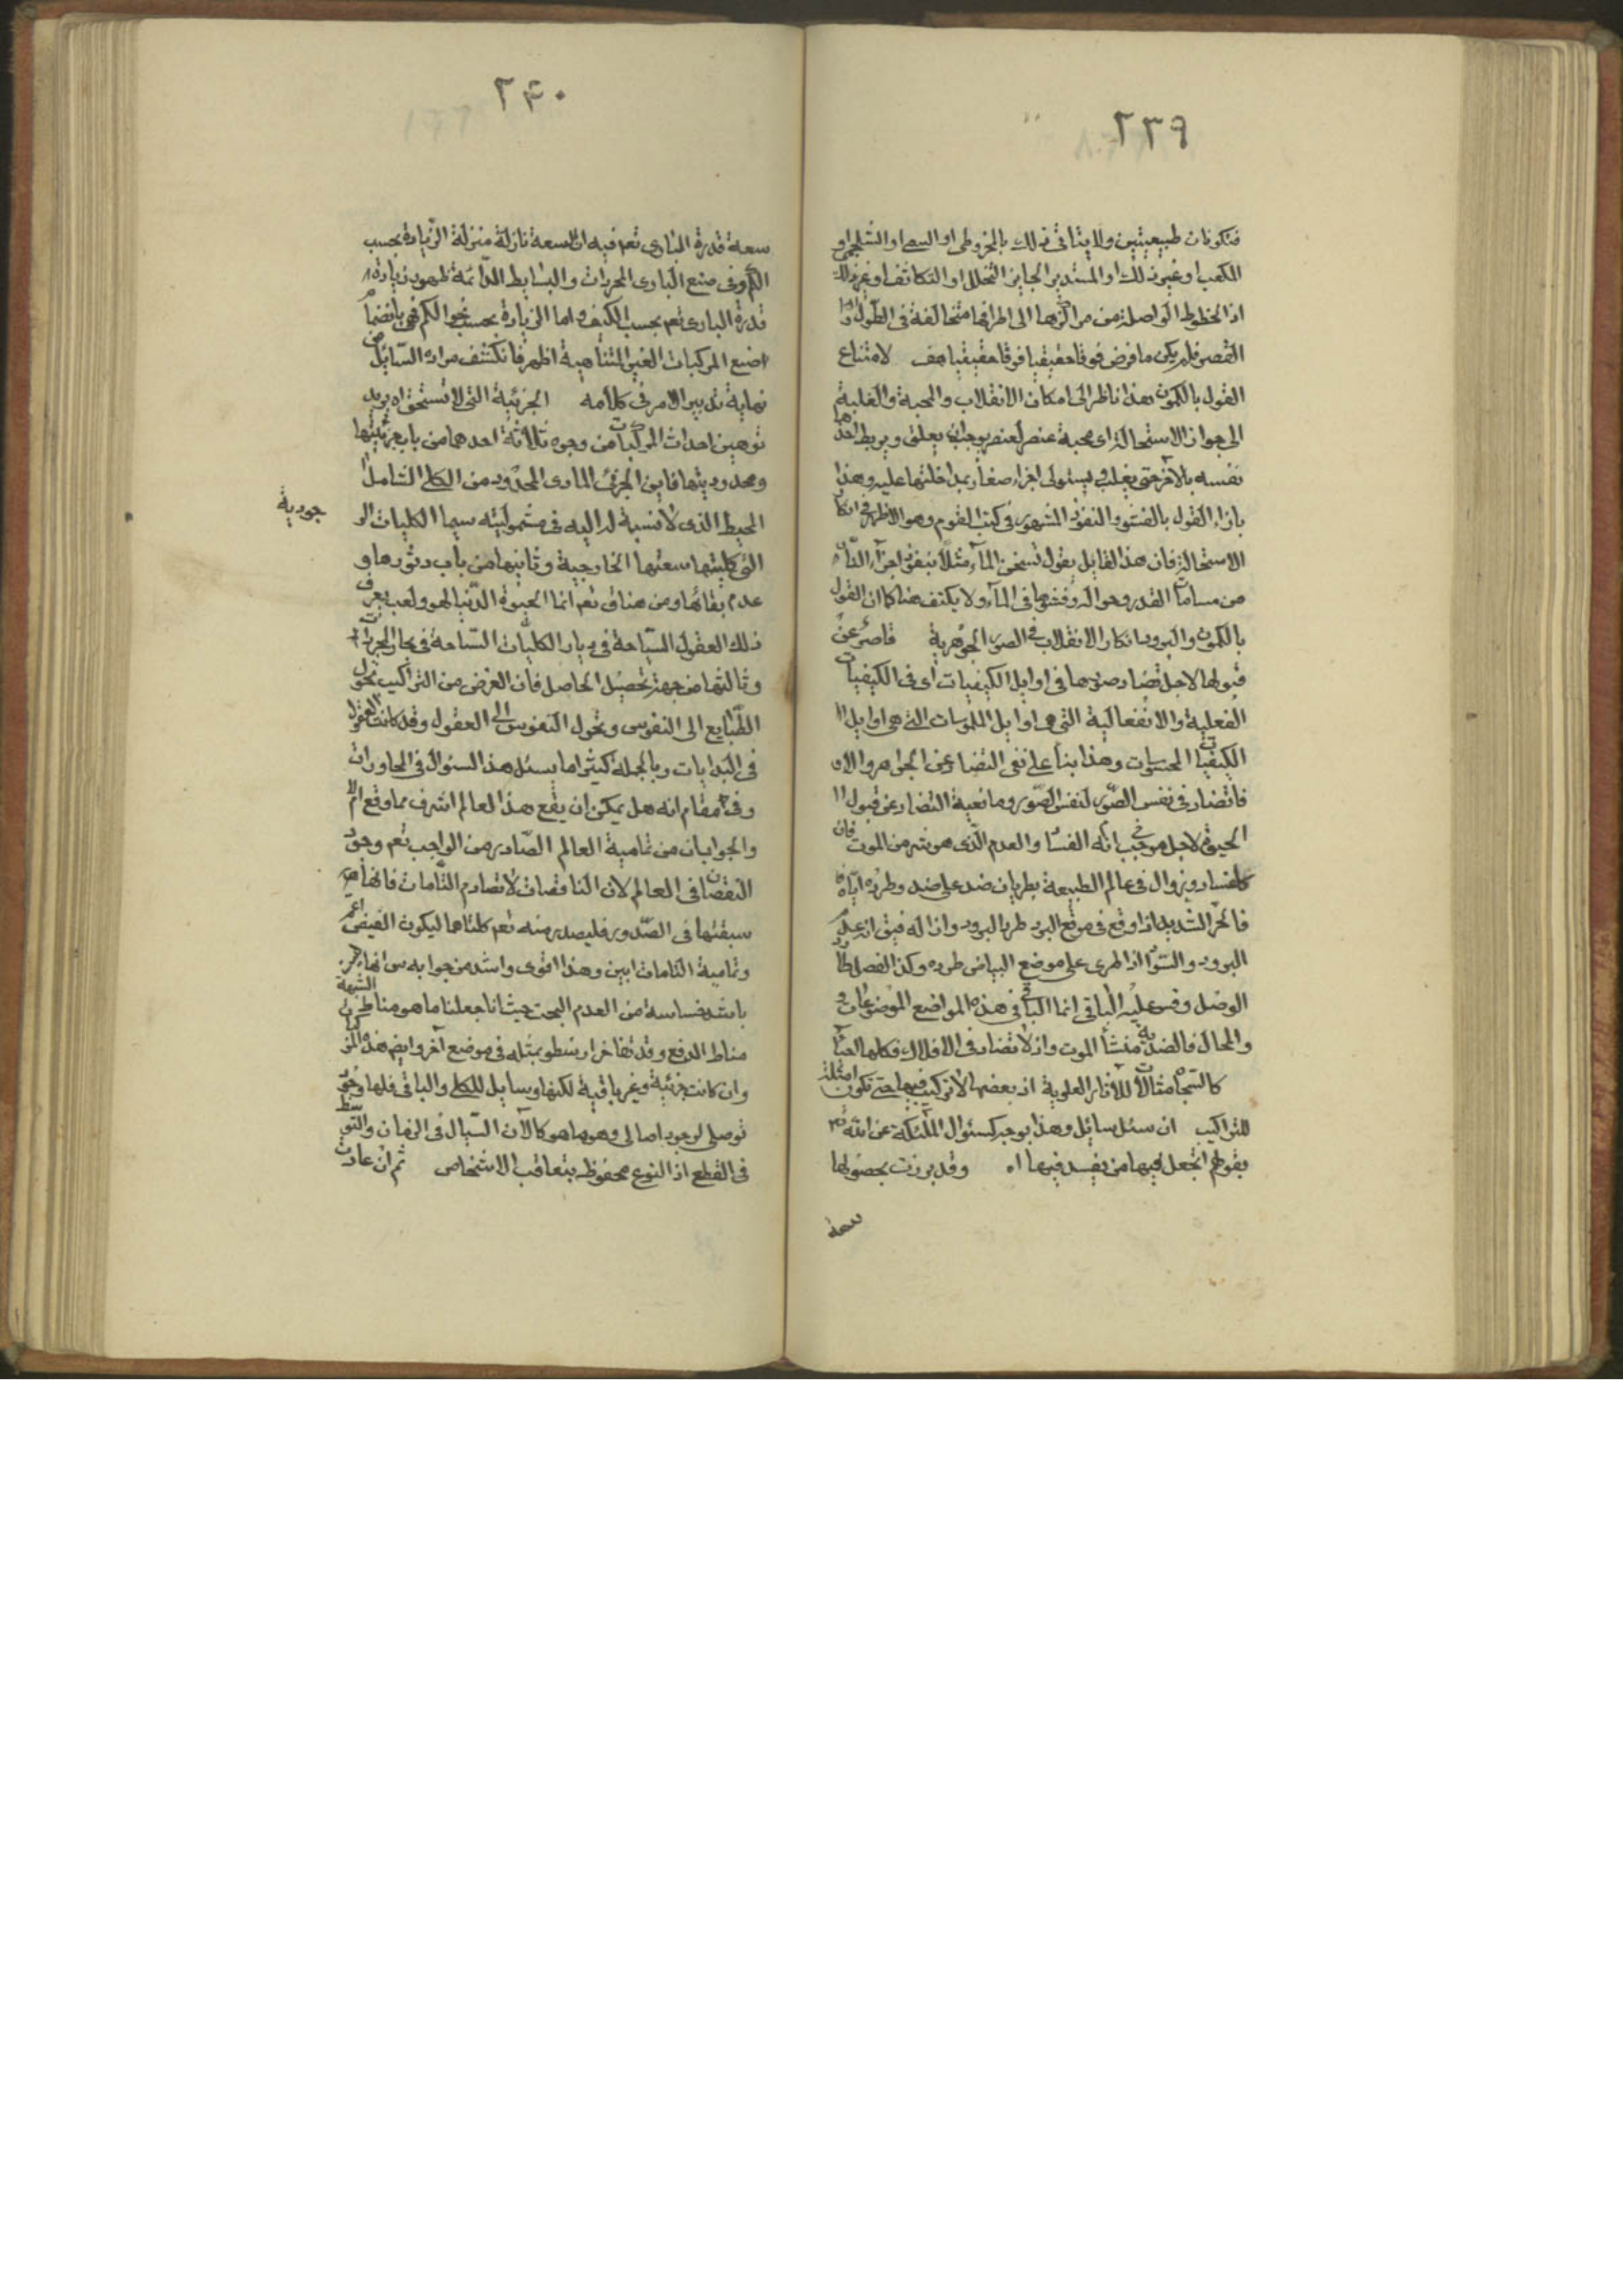 ٢٣٩
فتكونان طبيعيتين ولا يتأتى ذلك بالمخروطى او السهمى او الشلجمى او
المكعب او غير ذلك او المستدير الجايز التخلل او التكاثف او غير ذلك
اذ الخطوط الواصلة من مراكزها الى اطرافها متخالفة فى الطول و
القصر فلم يكن ما فرض فوقا حقيقيا فوقا حقيقيا هف لامتناع
القول بالكمون هذا ناظر الى امكان الانقلاب والمحبة والغلبة
الى جواز الاستحالة اى محبة عنصر لعنصر يوجب ان يعلق ويربط احدهما
نفسه بالآخر حتى يغلب ويستولى اجزاء صغار بمداخلتها عليه وهذا
بازاء القول بالفشو والنفوذ المشهور فى كتب القوم وهو الاظهر فى انكار
الاستحالة فان هذا القايل يقول تسخن الماء مثلا بنفوذ اجزاء النار
من مسامات القدر وحواله وفشوها فى الماء ولا يكتف هنا كما ان القول
بالكمون والبروز انكار الانقلاب فى الصور الجوهرية قاصر عن
قبولها لاجل تضاد صورها فى اوايل الكيفيات اى فى الكيفيات
الفعلية والانفعالية التى هى اوايل الملموسات التى هى اوايل
الكيفيات المحسوسات وهذا بناء على نفى التضاد عن الجواهر والا
فاتضاد فى نفس الصور لنفس الصور ومانعية التضاد عن قبول
الحيوة لاجل موجب انه الفساد والعدم الذى هو شر من الموت فان
كل فساد وزوال فى عالم الطبيعة بطريان ضد على ضد وطرده اياه
فالحر الشديد اذا وقع فى موقع البرد طرد البرود وازاله فيق انعدم
البرود والسواد اذا طرى على موضع البياض طرده وكذا الفصل طارد
الوصل وقس عليه الباقى انما الباقى فى هذه المواضع الموضوعات و
والمحال فالضدية منشأ الموت واذ لا تضاد فى الافلاك فكلها احياء
كالسحاب مثالا للآثار العلوية اذ بعضها لا تركيب فيها حتى تكون امثلة
للتراكيب ان سئل سائل وهذا بوجه كسئوال الملئكة عن الله تع
بقولهم اتجعل فيها من يفسد فيها اه وقد برزت بحصولها
سعة
٢٤٠
سعة قدرة البارى تعم فيه ان السعة نازلة منزلة الزيادة بحسب
الكم وفى صنع البارى المجردات والبسايط الدائمة ظهور زيادة
قدرة البارى تعم بحسب الكيف واما الزيادة بحسب نحو الكم فهى بانضمام
صنع المركبات الغير المتناهية اظهر فانكشف مراد السائل من
نهاية تدبير الامر فى كلامه الجزئية التى لا تستحق اه يريد
توهين احداث المركبات من وجوه ثلاثة احدهما من باب جزئيتها
ومحدوديتها فاين الجزئى المادى المحدود من الكلى الشامل
المحيط الذى لا نسبة له اليه فى مشموليته سيما الكليات الو
جودية
التى كليتها سعتها الخارجية وثانيها من باب دثورها و
عدم بقائها ومن هنا ق تعم انما الحيوة الدنيا لهو ولعب يعرف
ذلك العقول السياحة فى ديار الكليات السباحة فى بحار المجردات
وثالثها من جهة تحصيل الحاصل فان الغرض من التراكيب تحول
الطبايع الى النفوس وتحول النفوس الى العقول وقد كانت العقول
فى البدايات وبالجملة كثيرا ما يسئل هذا السئوال فى المحاورات
وفى مقام انه هل يمكن ان يقع هذا العالم اشرف مما وقع ام لا
والجوابان من تمامية العالم الصادر من الواجب تعم وجود
النقصان فى العالم لان الناقصات لا تصادم التامات فانها
سبقتها فى الصدور فليصدر منه تعم كلتاهما ليكون الفيض اعم
وتمامية التامات ابين وهذا اقوى واشد من جوابه
باشد خساسة من العدم البحت حيث انا جعلنا ما هو مناط الشبهة
مناط الدفع وقد تفاخر ارسطو بمثله فى موضع آخر وايضم هذه المركبات
وان كانت جزئية وغير باقية لكنها وسايل للكلى والباقى فلها وجود
توصلى لوجود اصالى وهو ما هو كالآن السيال فى الزمان والتوسط
فى القطع اذ النوع محفوظ بتعاقب الاشخاص ثم ان عادت